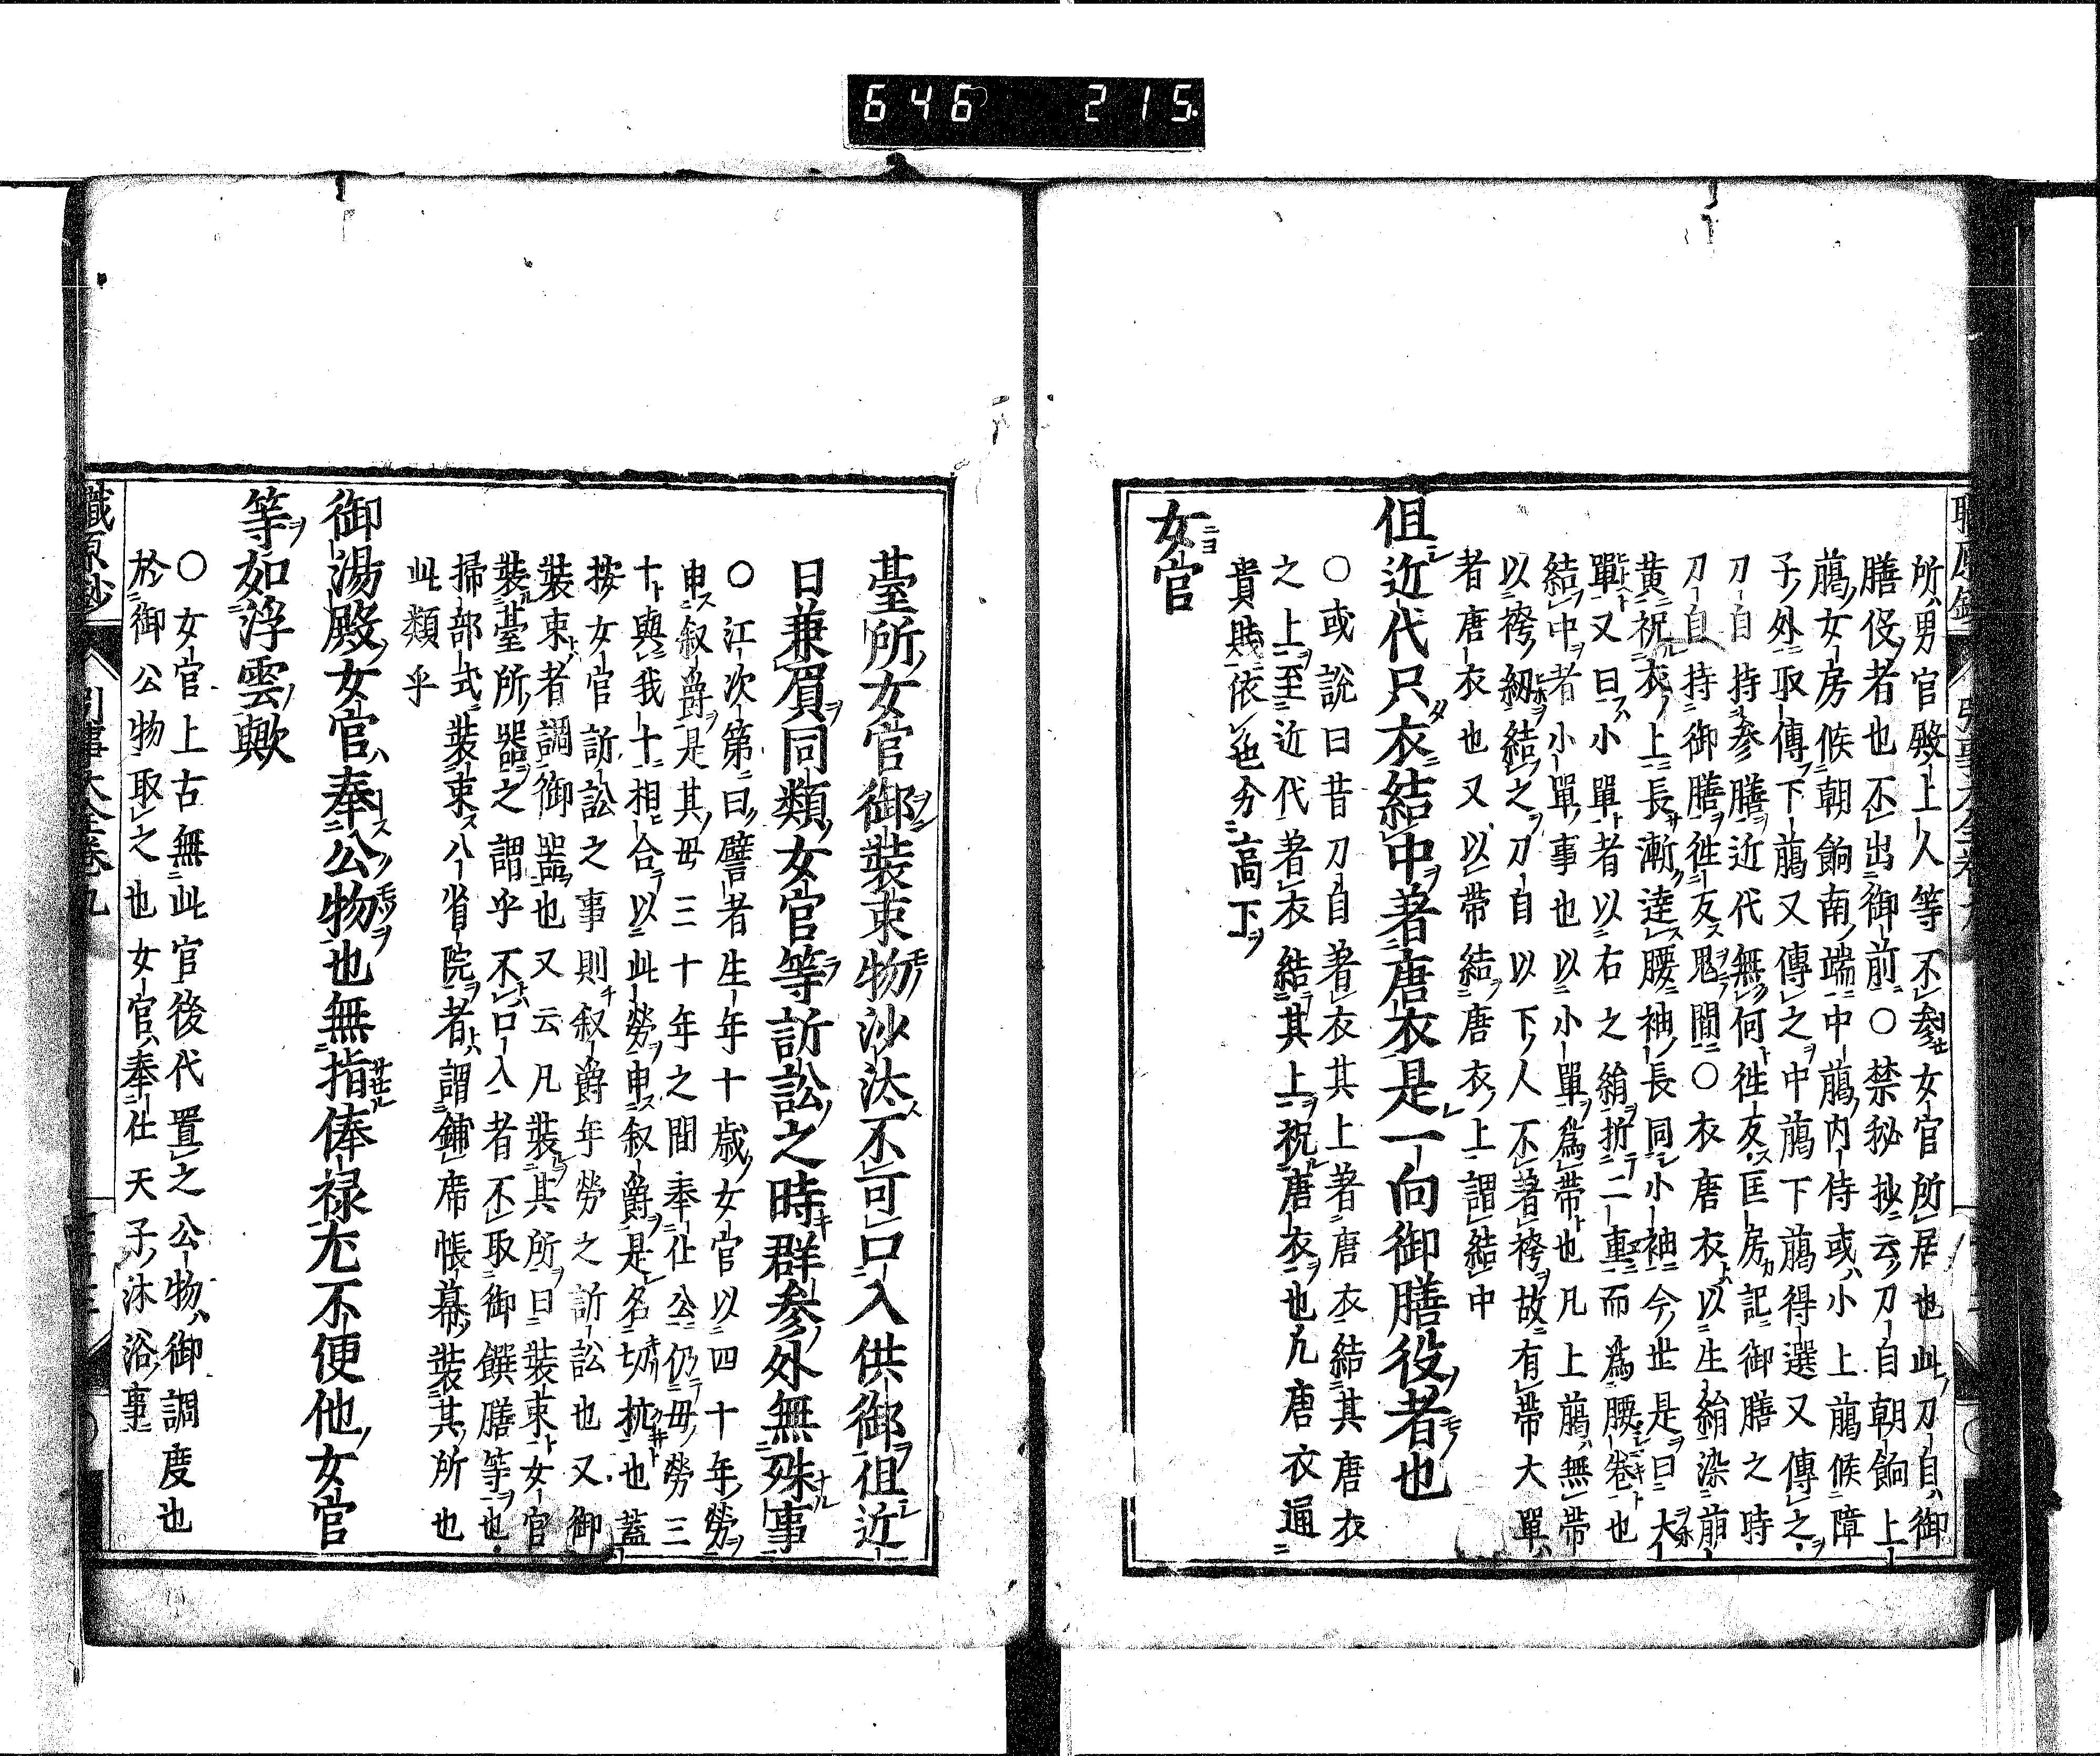 646 215
所男官殿上人等不参女官所居也此刀自御
膳役者也不出御前〇禁秘抄云刀自朝餉上
﨟女房候朝餉南端中﨟内侍或小上﨟候障
子外取傳下﨟又傳之中﨟下﨟得選又傳之
刀自持参膳近代無何徃友匡房記御膳之時
刀自持御膳徃友鬼間〇衣唐衣以生絹染萠
黄祝衣上長漸達腰袖長同小袖今世是曰大
單又曰小單者以右之絹折二重而為腰卷也
結中者小單事也以小單為帯也凡上﨟無帯
以袴紉結之刀自以下人不著袴故有帯大單
者唐衣也又以帯結唐衣上謂結中
但近代只衣結中著唐衣是一向御膳役者也
〇或説曰昔刀自著衣其上著唐衣結其唐衣
之上至近代著衣結其上祝唐衣也凡唐衣通
貴賎依色分高下
女官
臺所女官御裝束物沙汰不可口入供御但近
日兼眉同類女官等訴訟之時群参外無殊事
〇江次第曰譬者生年十歳女官以四十年勞
申叙爵是其毋三十年之間奉仕公仍毋勞三
十與我十相合以此勞申叙爵是名切杭也蓋
按女官訴訟之事則叙爵年勞之訴訟也又御
裝束者調御器也又云凡裝其所曰裝束女官
裝臺所器之謂乎不口入者不取御饌膳等也
掃部式裝束八省院者謂鋪席帳幕裝其所也
此類乎
御湯殿女官奉公物也無指俸禄尤不便他女官
等如浮雲歟
〇女官上古無此官後代置之公物御調度也
於御公物取之也女官奉仕天子沐浴事
職原鈔 引事大全卷九